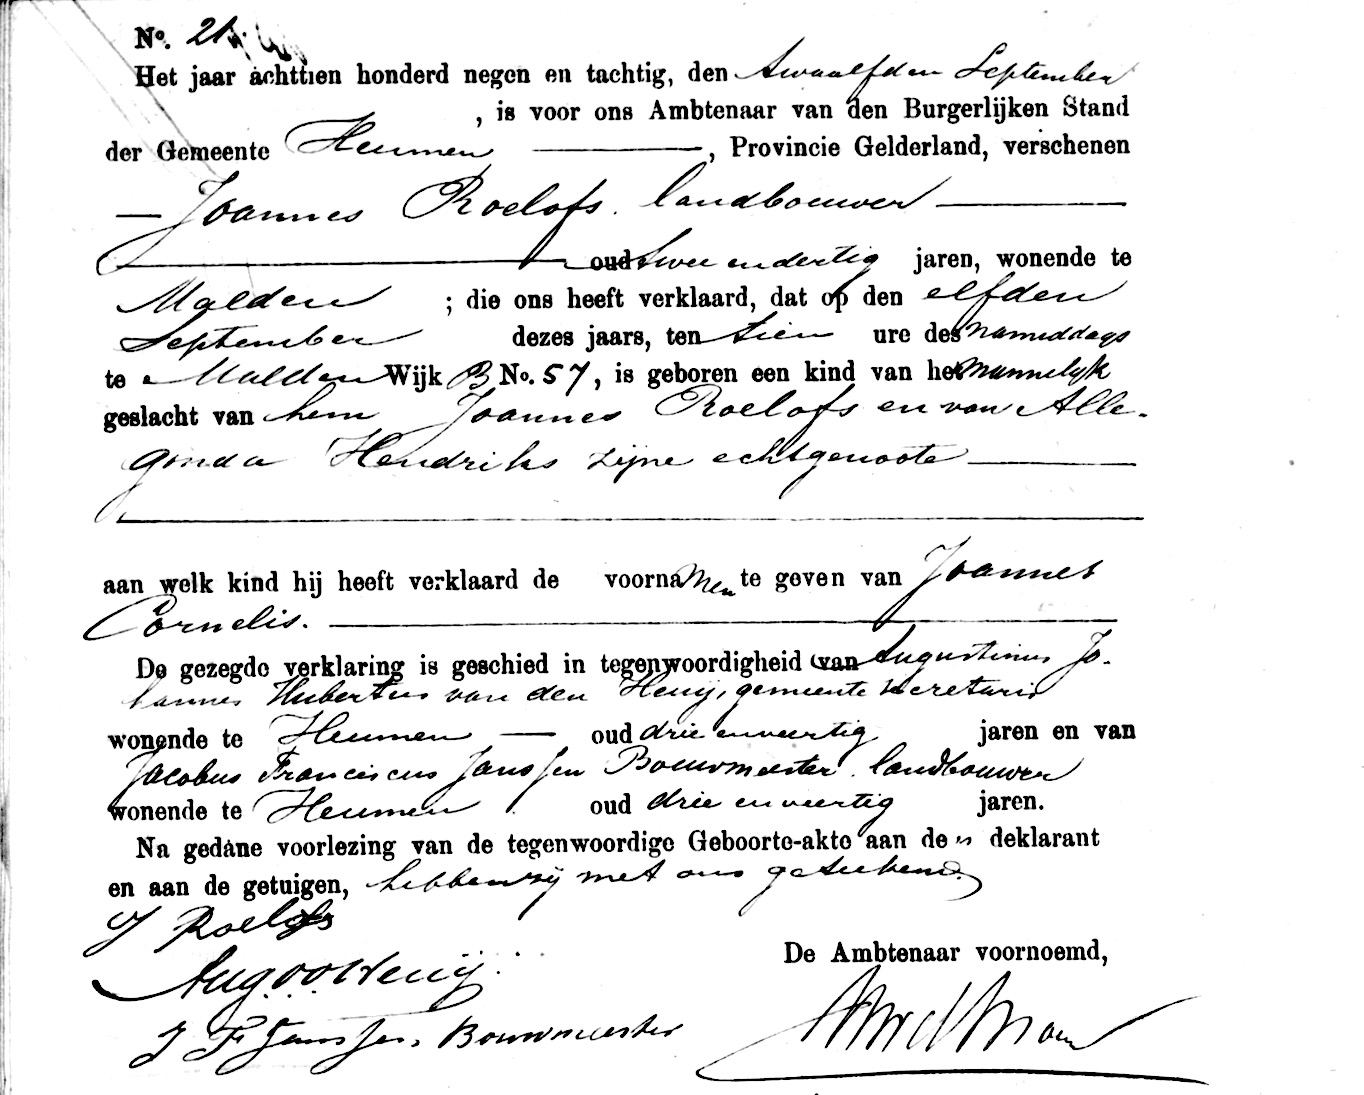 No. 21.
Het jaar achttien honderd negen en tachtig, den twaalfden September
, is voor ons Ambtenaar van den Burgerlijken Stand
der Gemeente Heumen, Provincie Gelderland, verschenen
Joannes Roelofs. landbouwer
oud twee en dertig jaren, wonende te
Malden ; die ons heeft verklaard, dat op den elfden
September dezes jaars, ten tien ure des namiddags
te Malden Wijk B No. 57, is geboren een kind van het mannelijk
geslacht van hem Joannes Roelofs en van Alle-
gonda Hendriks zijne echtgenoote
aan welk kind hij heeft verklaard de voornamen te geven van Joannes
Cornelis.
De gezegde verklaring is geschied in tegenwoordigheid van Augustinus Jo-
hannes Hubertus van den Heuij, gemeente secretaris
wonende te Heumen oud drie en veertig jaren en van
Jacobus Franciscus Janssen Bouwmeester. landbouwer
wonende te Heumen oud drie en veertig jaren.
Na gedane voorlezing van de tegenwoordige Geboorte-akte aan den deklarant
en aan de getuigen, hebben zij met ons geteekend.
J Roelofs
De Ambtenaar voornoemd,
J F Janssen. Bouwmeester